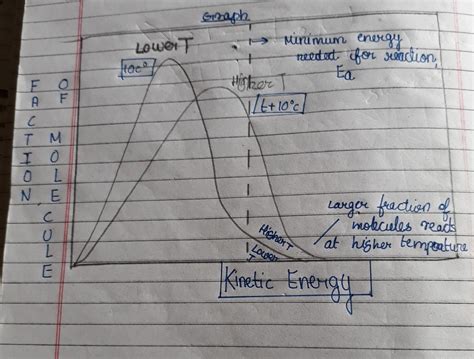 Graph
Lower T
10c°
→ Minimum energy
needed for reaction,
Ea
Higher T
t+10°c
FRACTION
OF MOLECULE
Larger fraction of
molecules reacts
at higher temperature
Higher T
Lower
T
Kinetic Energy